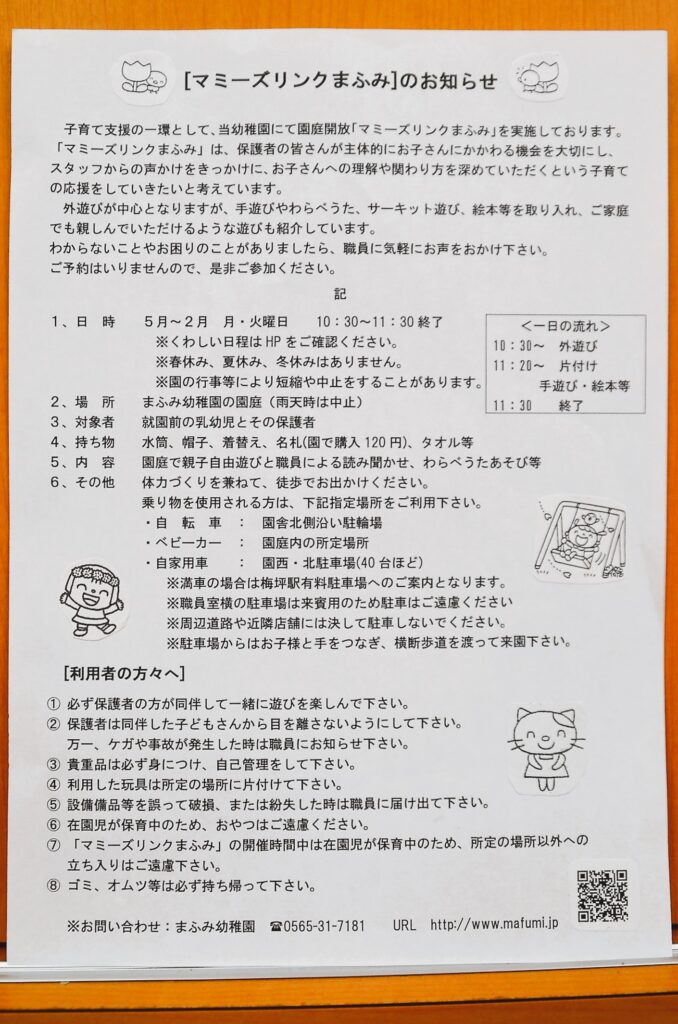 [マミーズリンクまふみ]のお知らせ
子育て支援の一環として、当幼稚園にて園庭開放「マミーズリンクまふみ」を実施しております。
「マミーズリンクまふみ」は、保護者の皆さんが主体的にお子さんにかかわる機会を大切にし、
スタッフからの声かけをきっかけに、お子さんへの理解や関わり方を深めていただくという子育て
の応援をしていきたいと考えています。
外遊びが中心となりますが、手遊びやわらべうた、サーキット遊び、絵本等を取り入れ、ご家庭
でも親しんでいただけるような遊びも紹介しています。
わからないことやお困りのことがありましたら、職員に気軽にお声をおかけ下さい。
ご予約はいりませんので、是非ご参加ください。
記
1、日　時　5月～2月　月・火曜日　10：30～11：30 終了
※くわしい日程は HP をご確認ください。
※春休み、夏休み、冬休みはありません。
※園の行事等により短縮や中止をすることがあります。
＜一日の流れ＞
10：30～　外遊び
11：20～　片付け
手遊び・絵本等
11：30　終了
2、場　所　まふみ幼稚園の園庭（雨天時は中止）
3、対象者　就園前の乳幼児とその保護者
4、持ち物　水筒、帽子、着替え、名札(園で購入 120 円)、タオル等
5、内　容　園庭で親子自由遊びと職員による読み聞かせ、わらべうたあそび等
6、その他　体力づくりを兼ねて、徒歩でお出かけください。
乗り物を使用される方は、下記指定場所をご利用下さい。
・自　転　車　：　園舎北側沿い駐輪場
・ベビーカー　：　園庭内の所定場所
・自家用車　：　園西・北駐車場(40 台ほど)
※満車の場合は梅坪駅有料駐車場へのご案内となります。
※職員室横の駐車場は来賓用のため駐車はご遠慮ください
※周辺道路や近隣店舗には決して駐車しないでください。
※駐車場からはお子様と手をつなぎ、横断歩道を渡って来園下さい。
[利用者の方々へ]
① 必ず保護者の方が同伴して一緒に遊びを楽しんで下さい。
② 保護者は同伴した子どもさんから目を離さないようにして下さい。
万一、ケガや事故が発生した時は職員にお知らせ下さい。
③ 貴重品は必ず身につけ、自己管理をして下さい。
④ 利用した玩具は所定の場所に片付けて下さい。
⑤ 設備備品等を誤って破損、または紛失した時は職員に届け出て下さい。
⑥ 在園児が保育中のため、おやつはご遠慮ください。
⑦ 「マミーズリンクまふみ」の開催時間中は在園児が保育中のため、所定の場所以外への
立ち入りはご遠慮下さい。
⑧ ゴミ、オムツ等は必ず持ち帰って下さい。
※お問い合わせ：まふみ幼稚園　☎0565-31-7181　URL　http://www.mafumi.jp